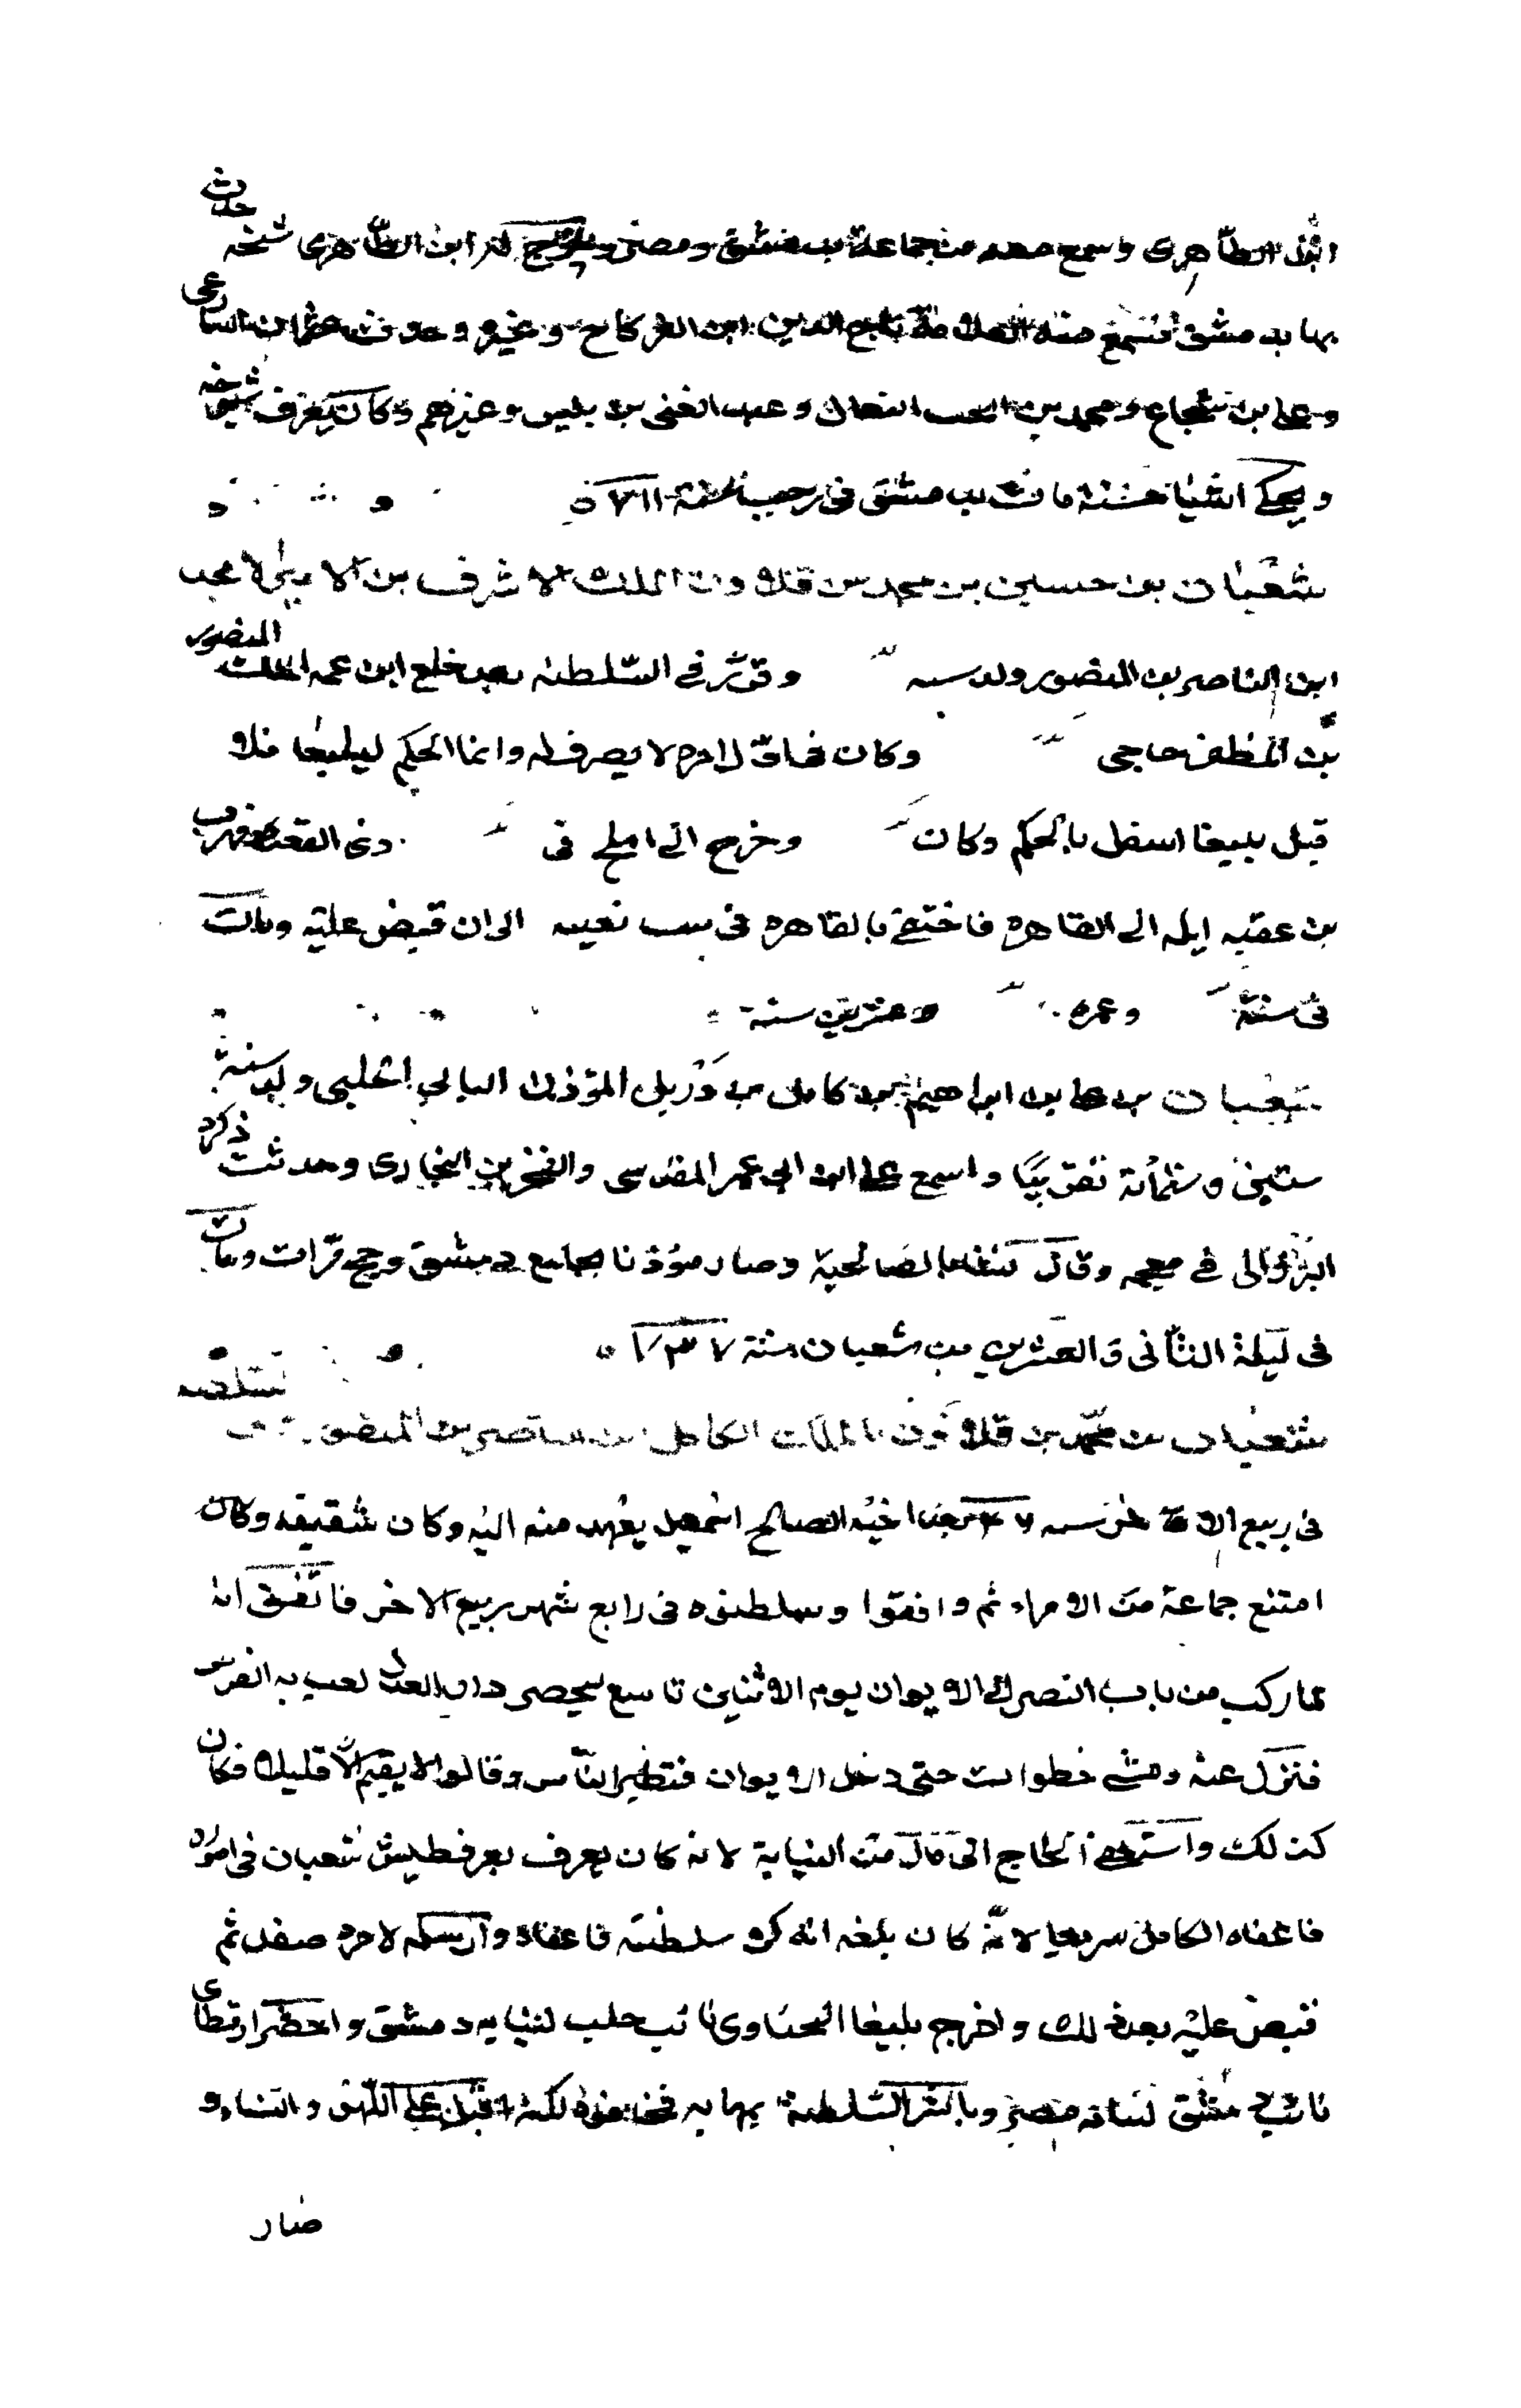 ابن الظاهرى وسمع معه من جماعة بدمشق ومصر وخرج له ابن الظاهرى مشيخة حدث
بها بدمشق فسمع منه العلامة تاج الدين ابن الفركاح وغيره وحدث عن
وعلى بن شجاع ومحمد بن النعال وعبد الغنى بن بنين وغيرهم وكان يعرف شيوخه
ويحكى اشيا حسنة مات بدمشق فى رجب سنة ٧١١
شعبان بن حسين بن محمد بن قلاون الملك الاشرف بن الامير الامجد
ابن الناصر بن المنصور ولد سنه وقرر فى السلطنه بعد خلع ابن عمه الملك المنصور
بن المظفر حاجى وكان لا يصرف له وانما الحكم ليلبغا فلا
قتل يلبغا استقل بالحكم وكان وخرج الى فى ذى القعدة فهرب
من عقبه ايله الى القاهره فاختفى بالقاهره فى بيت الى ان قبض عليه ومات
فى سنة وعمره وعشرين سنة
شعبان بن على بن ابراهيم بن كامل بن المؤذن الحلبى ولد سنة
ستين وستمائة تقريبا واسمع على ابن ابى عمر المقدسى والفخر بن البخارى وحدث ذكره
البرزالى فى معجمه وقال بالصالحية وصار مؤذنا بجامع دمشق وحج مرات ومات
فى ليلة الثانى والعشرين من شعبان سنة ٧٣٧
شعبان بن محمد بن قلاون الملك الكامل بن الناصر بن المنصور
فى ربيع الاخر سنه ٧٤٦ بعد اخيه الصالح اسمعيل بعهد منه اليه وكان شقيقه وكان
امتنع جماعة من الامراء ثم وافقوا وسلطنوه فى رابع شهر ربيع الاخر فاتفق انه
لما ركب من باب القصر الى الايوان يوم الاثنين تاسع ليحضر دار العدل لعب به الفرس
فنزل عنه ومشى خطوات حتى دخل الايوان فتطير الناس وقالوا لا يقيم الا قليلا فكان
كذلك الحاج ال ملك من النيابة لانه كان يعرف شعبان فى اموره
فاعفاه الكامل سريعا لانه كان بلغه انه كره سلطنته فاعفاه وارسله لامره صفد ثم
قبض عليه بعد ذلك واخرج يلبغا اليحياوى نائب حلب لنيابه دمشق واحضر ارقطاى
نائب السلطنة بمهابه لكنه اقبل على اللهو والنساء و
صار